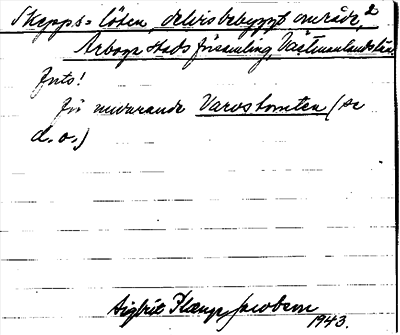 Skepps-löten, delvis bebyggt område, 2
Arboga stads församling, Västmanlands län
Juts!
för nuvarande Varvstomten (se
d. o.)
Sigbrit Plænge Jacobson
1943.